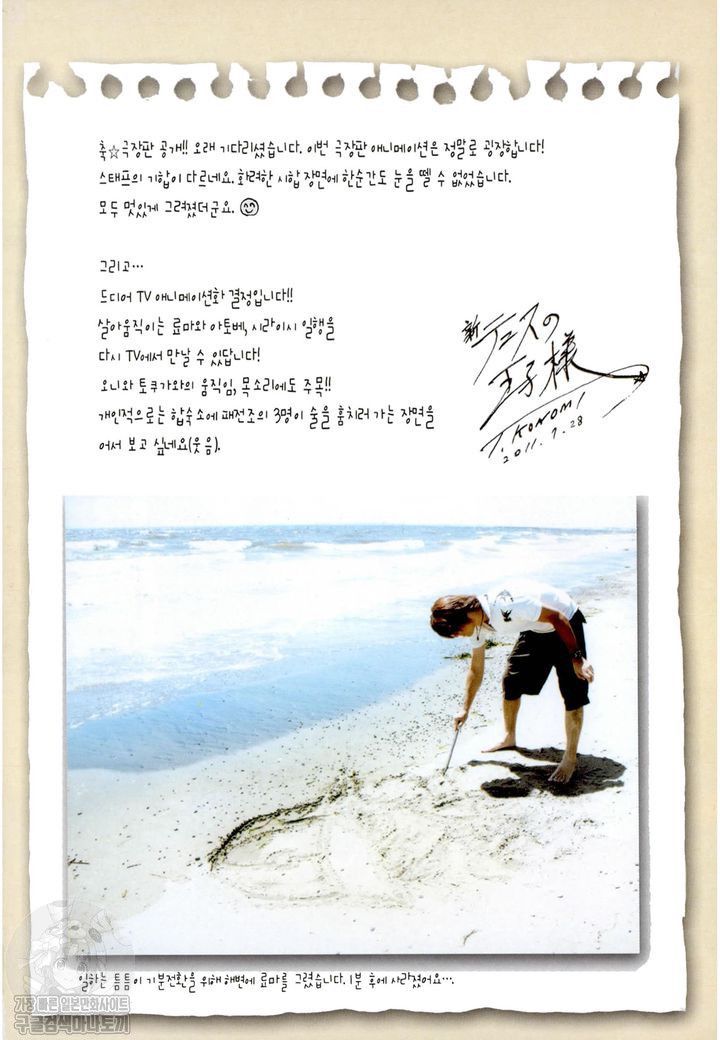 축☆극장판 공개!! 오래 기다리셨습니다. 이번 극장판 애니메이션은 정말로 굉장합니다!
스태프의 기합이 다르네요. 화려한 시합 장면에 한순간도 눈을 뗄 수 없었습니다.
모두 멋있게 그려졌더군요.
그리고…
드디어 TV 애니메이션화 결정입니다!!
살아움직이는 료마와 아토베, 시라이시 일행을
다시 TV에서 만날 수 있답니다!
오니와 토쿠가와의 움직임, 목소리에도 주목!!
개인적으로는 합숙소에 패전조의 3명이 술을 훔치러 가는 장면을
어서 보고 싶네요(웃음).
新テニスの
王子様
T. KONOMI
2011.7.28
일하는 틈틈이 기분전환을 위해 해변에 료마를 그렸습니다. 1분 후에 사라졌어요….
가장 빠른 일본만화사이트
구글검색마나토끼